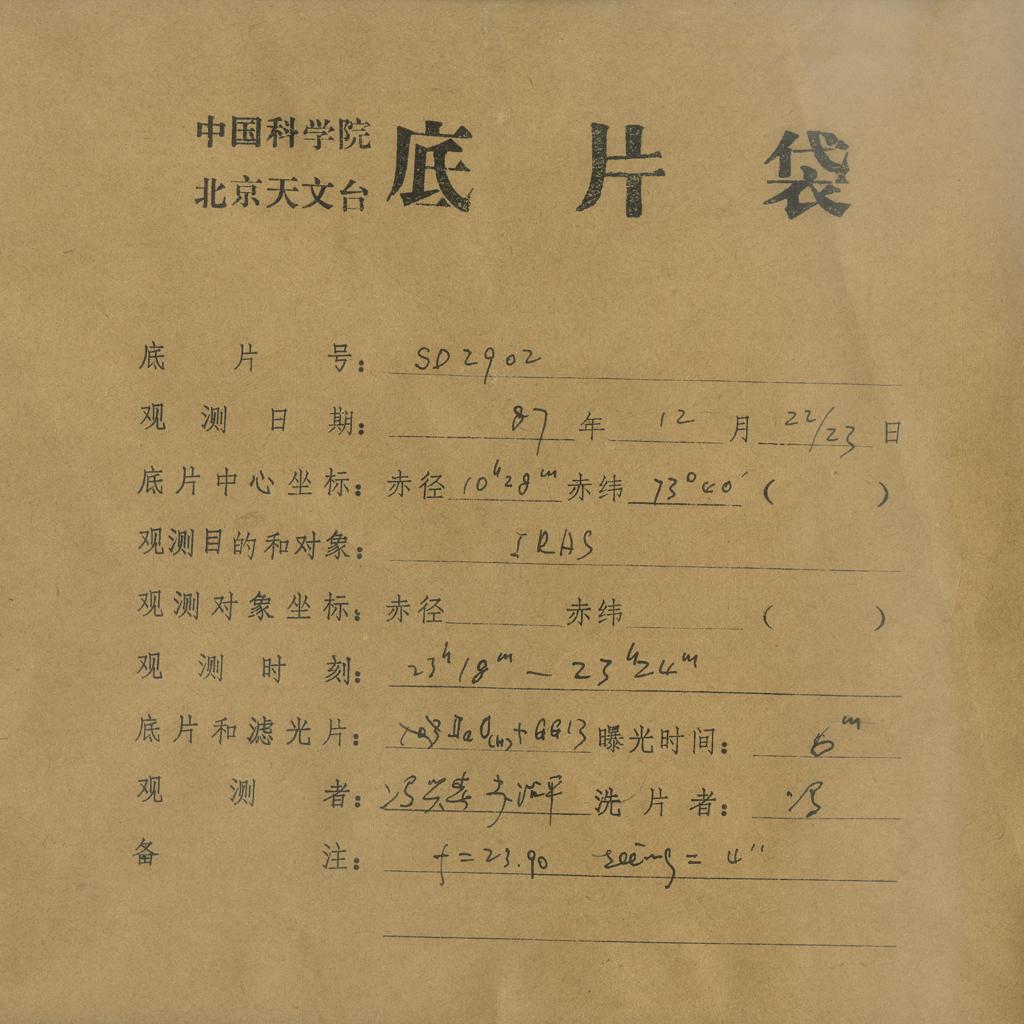 中国科学院
北京天文台
底片袋
底片号： SD2902
观测日期： 87年 12月 22/23日
底片中心坐标：赤径 10h28m 赤纬 73°40′ （ ）
观测目的和对象： IRAS
观测对象坐标：赤径 赤纬 （ ）
观测时刻： 23h18m — 23h24m
底片和滤光片： IIaO(H)+GG13 曝光时间： 6m
观测者： 冯 洗片者： 冯
备注： f=23.90 seeing=4″